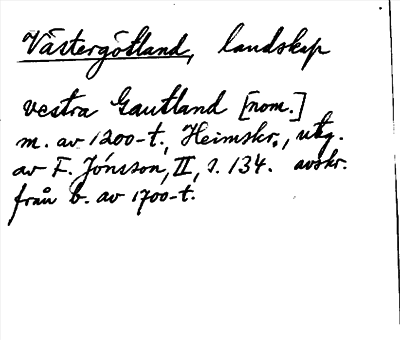 Västergötland, landskap
vestra Gautland [nom.]
m. av 1200-t., Heimskr., utg.
av F. Jónsson, II, s. 134. avskr.
från b. av 1700-t.